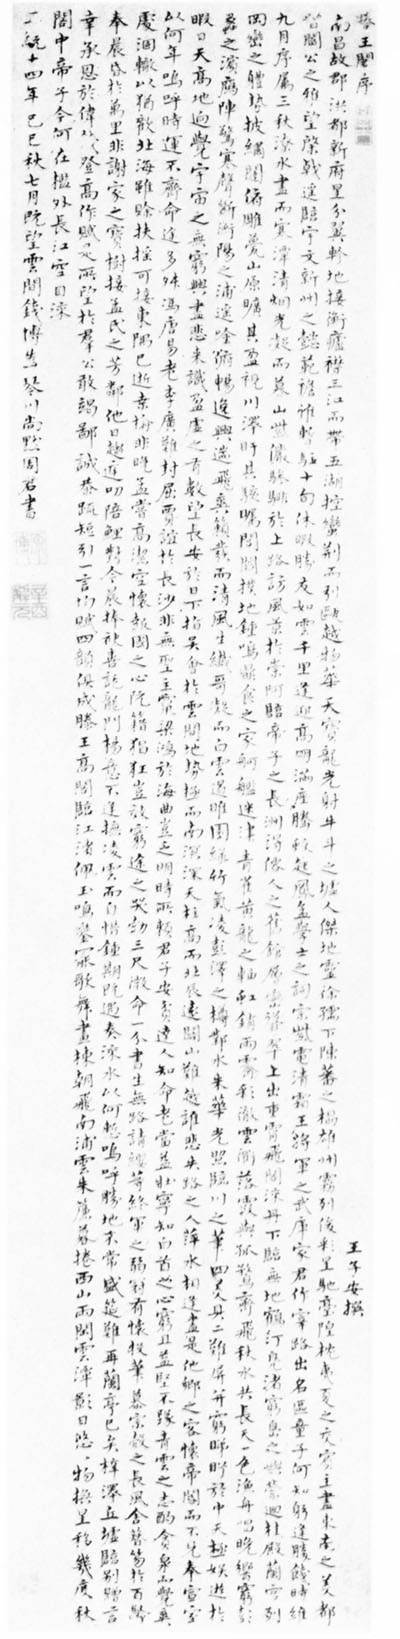 滕王閣序
王子安撰
南昌故郡洪都新府星分翼軫地接衡廬襟三江而帶五湖控蠻荊而引甌越物華天寶龍光射牛斗之墟人傑地靈徐孺下陳蕃之榻雄州霧列俊彩星馳臺隍枕夷夏之交賓主盡東南之美都
督閻公之雅望棨戟遙臨宇文新州之懿範襜帷暫駐十旬休暇勝友如雲千里逢迎高朋滿座騰蛟起鳳孟學士之詞宗紫電清霜王將軍之武庫家君作宰路出名區童子何知躬逢勝餞時維
九月序屬三秋潦水盡而寒潭清烟光凝而暮山紫儼驂騑於上路訪風景於崇阿臨帝子之長洲得僊人之舊館層巒聳翠上出重霄飛閣流丹下臨無地鶴汀鳧渚窮島嶼之縈迴桂殿蘭宮列
岡巒之體勢披繡闥俯雕甍山原曠其盈視川澤盱其駭矚閭閻撲地鍾鳴鼎食之家舸艦迷津青雀黃龍之軸虹銷雨霽彩徹雲衢落霞與孤鶩齊飛秋水共長天一色漁舟唱晚響窮彭
蠡之濱鴈陣驚寒聲斷衡陽之浦遙吟俯暢逸興遄飛爽籟發而清風生纖歌凝而白雲遏睢園綠竹氣凌彭澤之樽鄴水朱華光照臨川之筆四美具二難并窮睇眄於中天極娛遊於
暇日天高地迥覺宇宙之無窮興盡悲來識盈虛之有數望長安於日下指吳會於雲間地勢極而南溟深天柱高而北辰遠關山難越誰悲失路之人萍水相逢盡是他鄉之客懷帝閽而不見奉宣室
以何年嗚呼時運不齊命途多舛馮唐易老李廣難封屈賈誼於長沙非無聖主竄梁鴻於海曲豈乏明時所賴君子安貧達人知命老當益壯寧知白首之心窮且益堅不墜青雲之志酌貪泉而覺爽
處涸轍以猶歡北海雖賒扶搖可接東隅已逝桑榆非晚孟嘗高潔空懷報國之心阮籍猖狂豈效窮途之哭勃三尺微命一介書生無路請纓等終軍之弱冠有懷投筆慕宗愨之長風舍簪笏於百齡
奉晨昏於萬里非謝家之寶樹接孟氏之芳鄰他日趨庭叨陪鯉對今晨捧袂喜託龍門楊意不逢撫凌雲而自惜鍾期既遇奏流水以何慚嗚呼勝地不常盛筵難再蘭亭已矣梓澤丘墟臨別贈言
幸承恩於偉餞登高作賦是所望於羣公敢竭鄙誠恭疏短引一言均賦四韻俱成滕王高閣臨江渚佩玉鳴鑾罷歌舞畫棟朝飛南浦雲朱簾暮捲西山雨閒雲潭影日悠悠物換星移幾度秋
閣中帝子今何在檻外長江空自流
正統十四年己巳秋七月既望雲間錢博為琴川尚默周君書